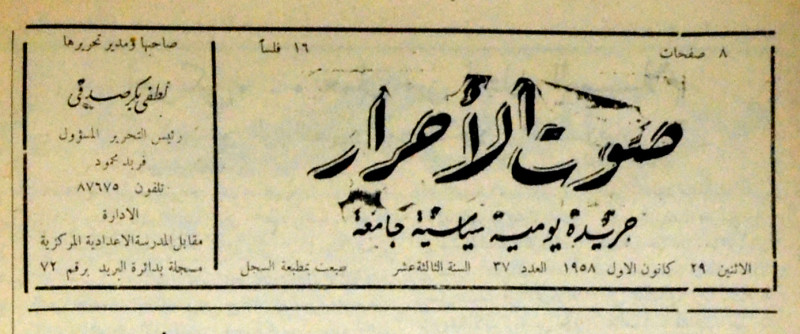 ٨ صفحات
١٦ فلساً
صوت الأحرار
جريدة يومية سياسية جامعة
الاثنين ٢٩ كانون الاول ١٩٥٨ العدد ٣٧ السنة الثالثة عشر طبعت بمطبعة السجل
صاحبها ومدير تحريرها
لطفي بكر صدقي
رئيس التحرير المسؤول
فريد محمود
تلفون ٨٧٦٧٥
الادارة
مقابل المدرسة الاعدادية المركزية
مسجلة بدائرة البريد برقم ٧٢